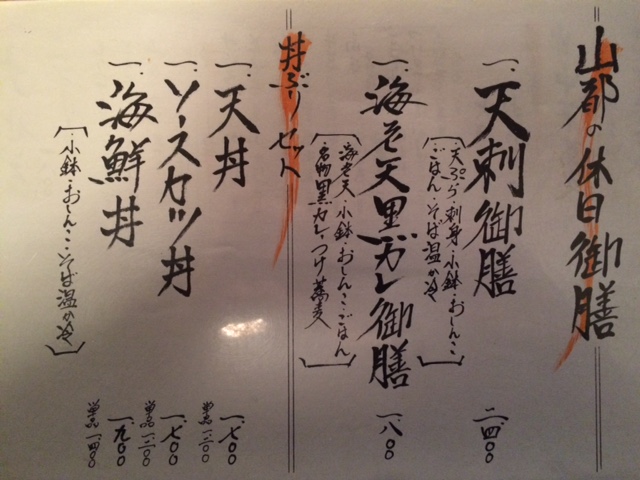 山都の休日御膳
一、天刺御膳 二、四〇〇
(天ぷら・刺身・小鉢・おしんこ
ごはん・そば温か冷)
一、海老天黒カレ御膳 一、八〇〇
(海老天・小鉢・おしんこ・ごはん
名物黒カレつけ蕎麦)
丼ぶりセット
一、天丼 一、七〇〇
単品一、二〇〇
一、ソースカツ丼 一、七〇〇
単品一、二〇〇
一、海鮮丼 一、九〇〇
単品一、四〇〇
(小鉢・おしんこ・そば温か冷)